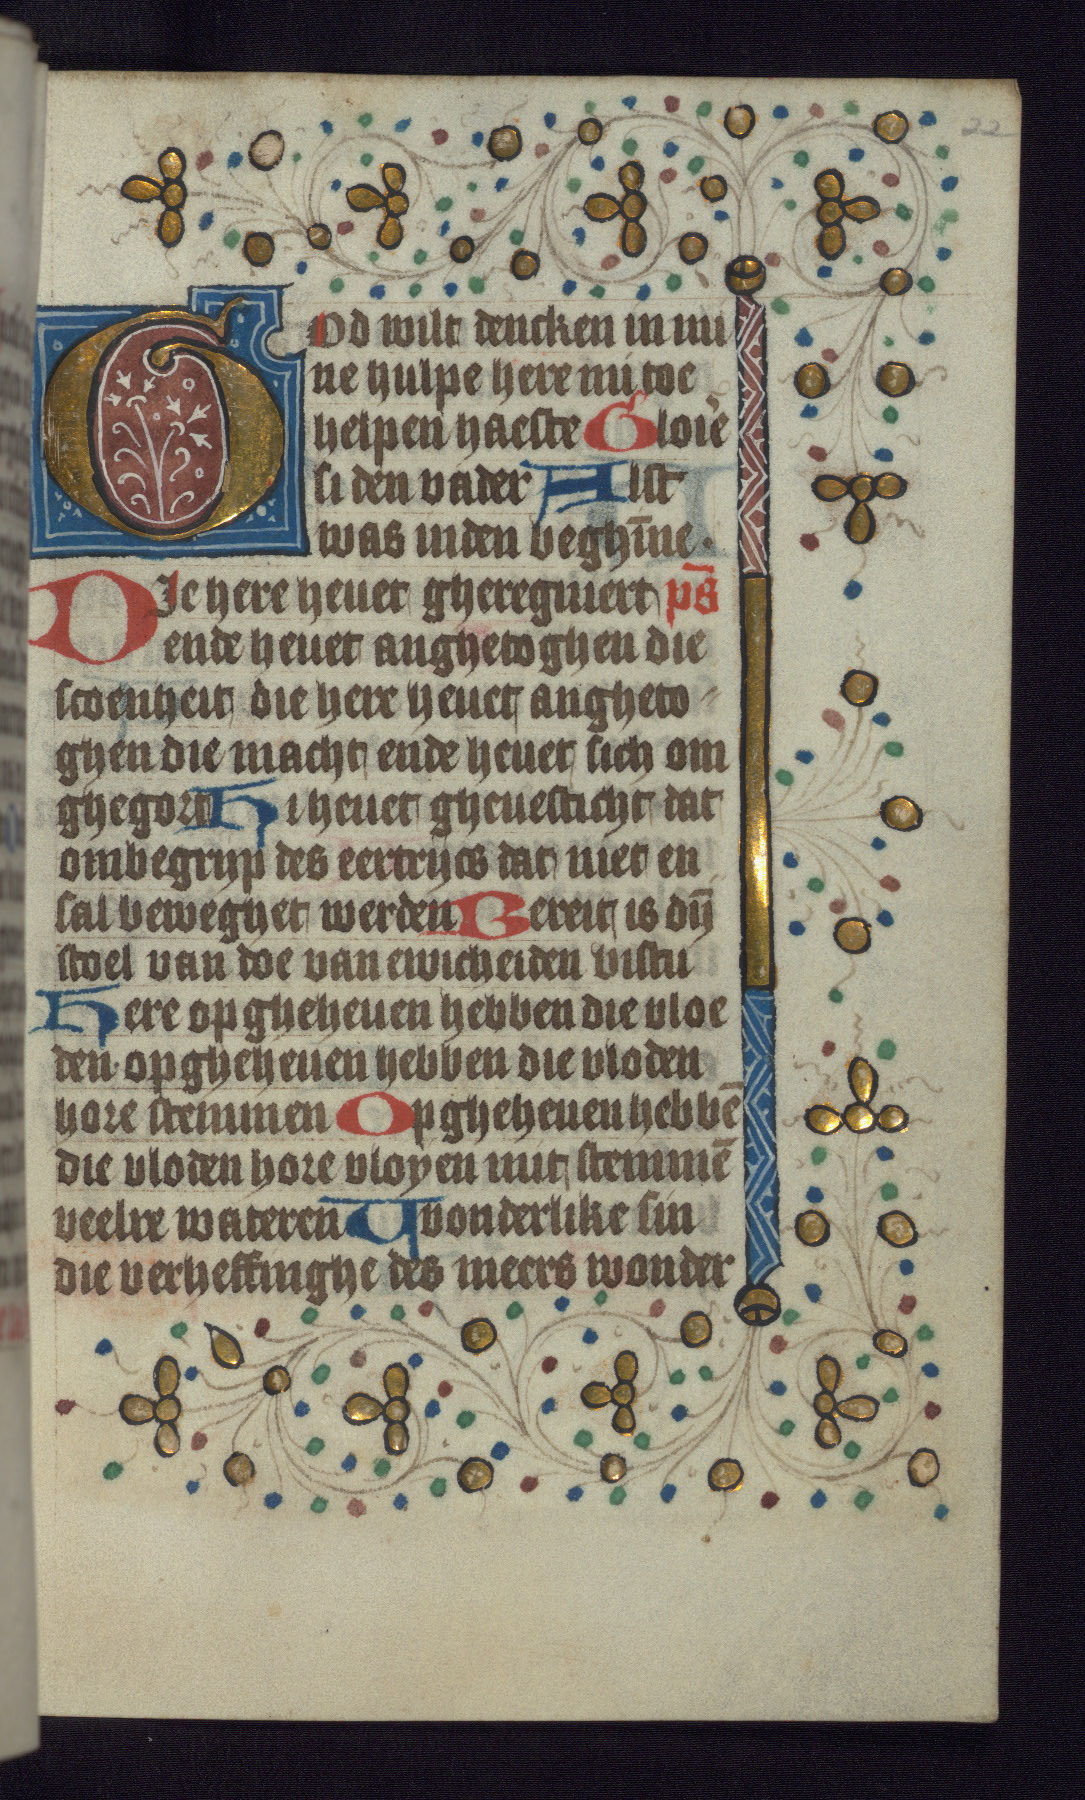 22
God wilt dencken in mi
ne hulpe here mi toe
helpen haeste Glorie
si den vader Alst
was inden beghīne.
Die here heuet gheregniert ps̄
ende heuet anghetoghen die
scoenheit die here heuet angheto
ghen die macht ende heuet sich om
ghegort Hi heuet gheuesticht dat
ombegrijp des eertrijcs dat niet en
sal beweghet werden Bereit is dijn
stoel van doe van ewicheiden bistu
Here opgheheuen hebben die vloe
den opgheheuen hebben die vloden
hore stemmen Opgheheuen hebbē
die vloden hore vloyen mit stemmē
veelre wateren Wonderlike sin
die verheffinghe des meers wonder